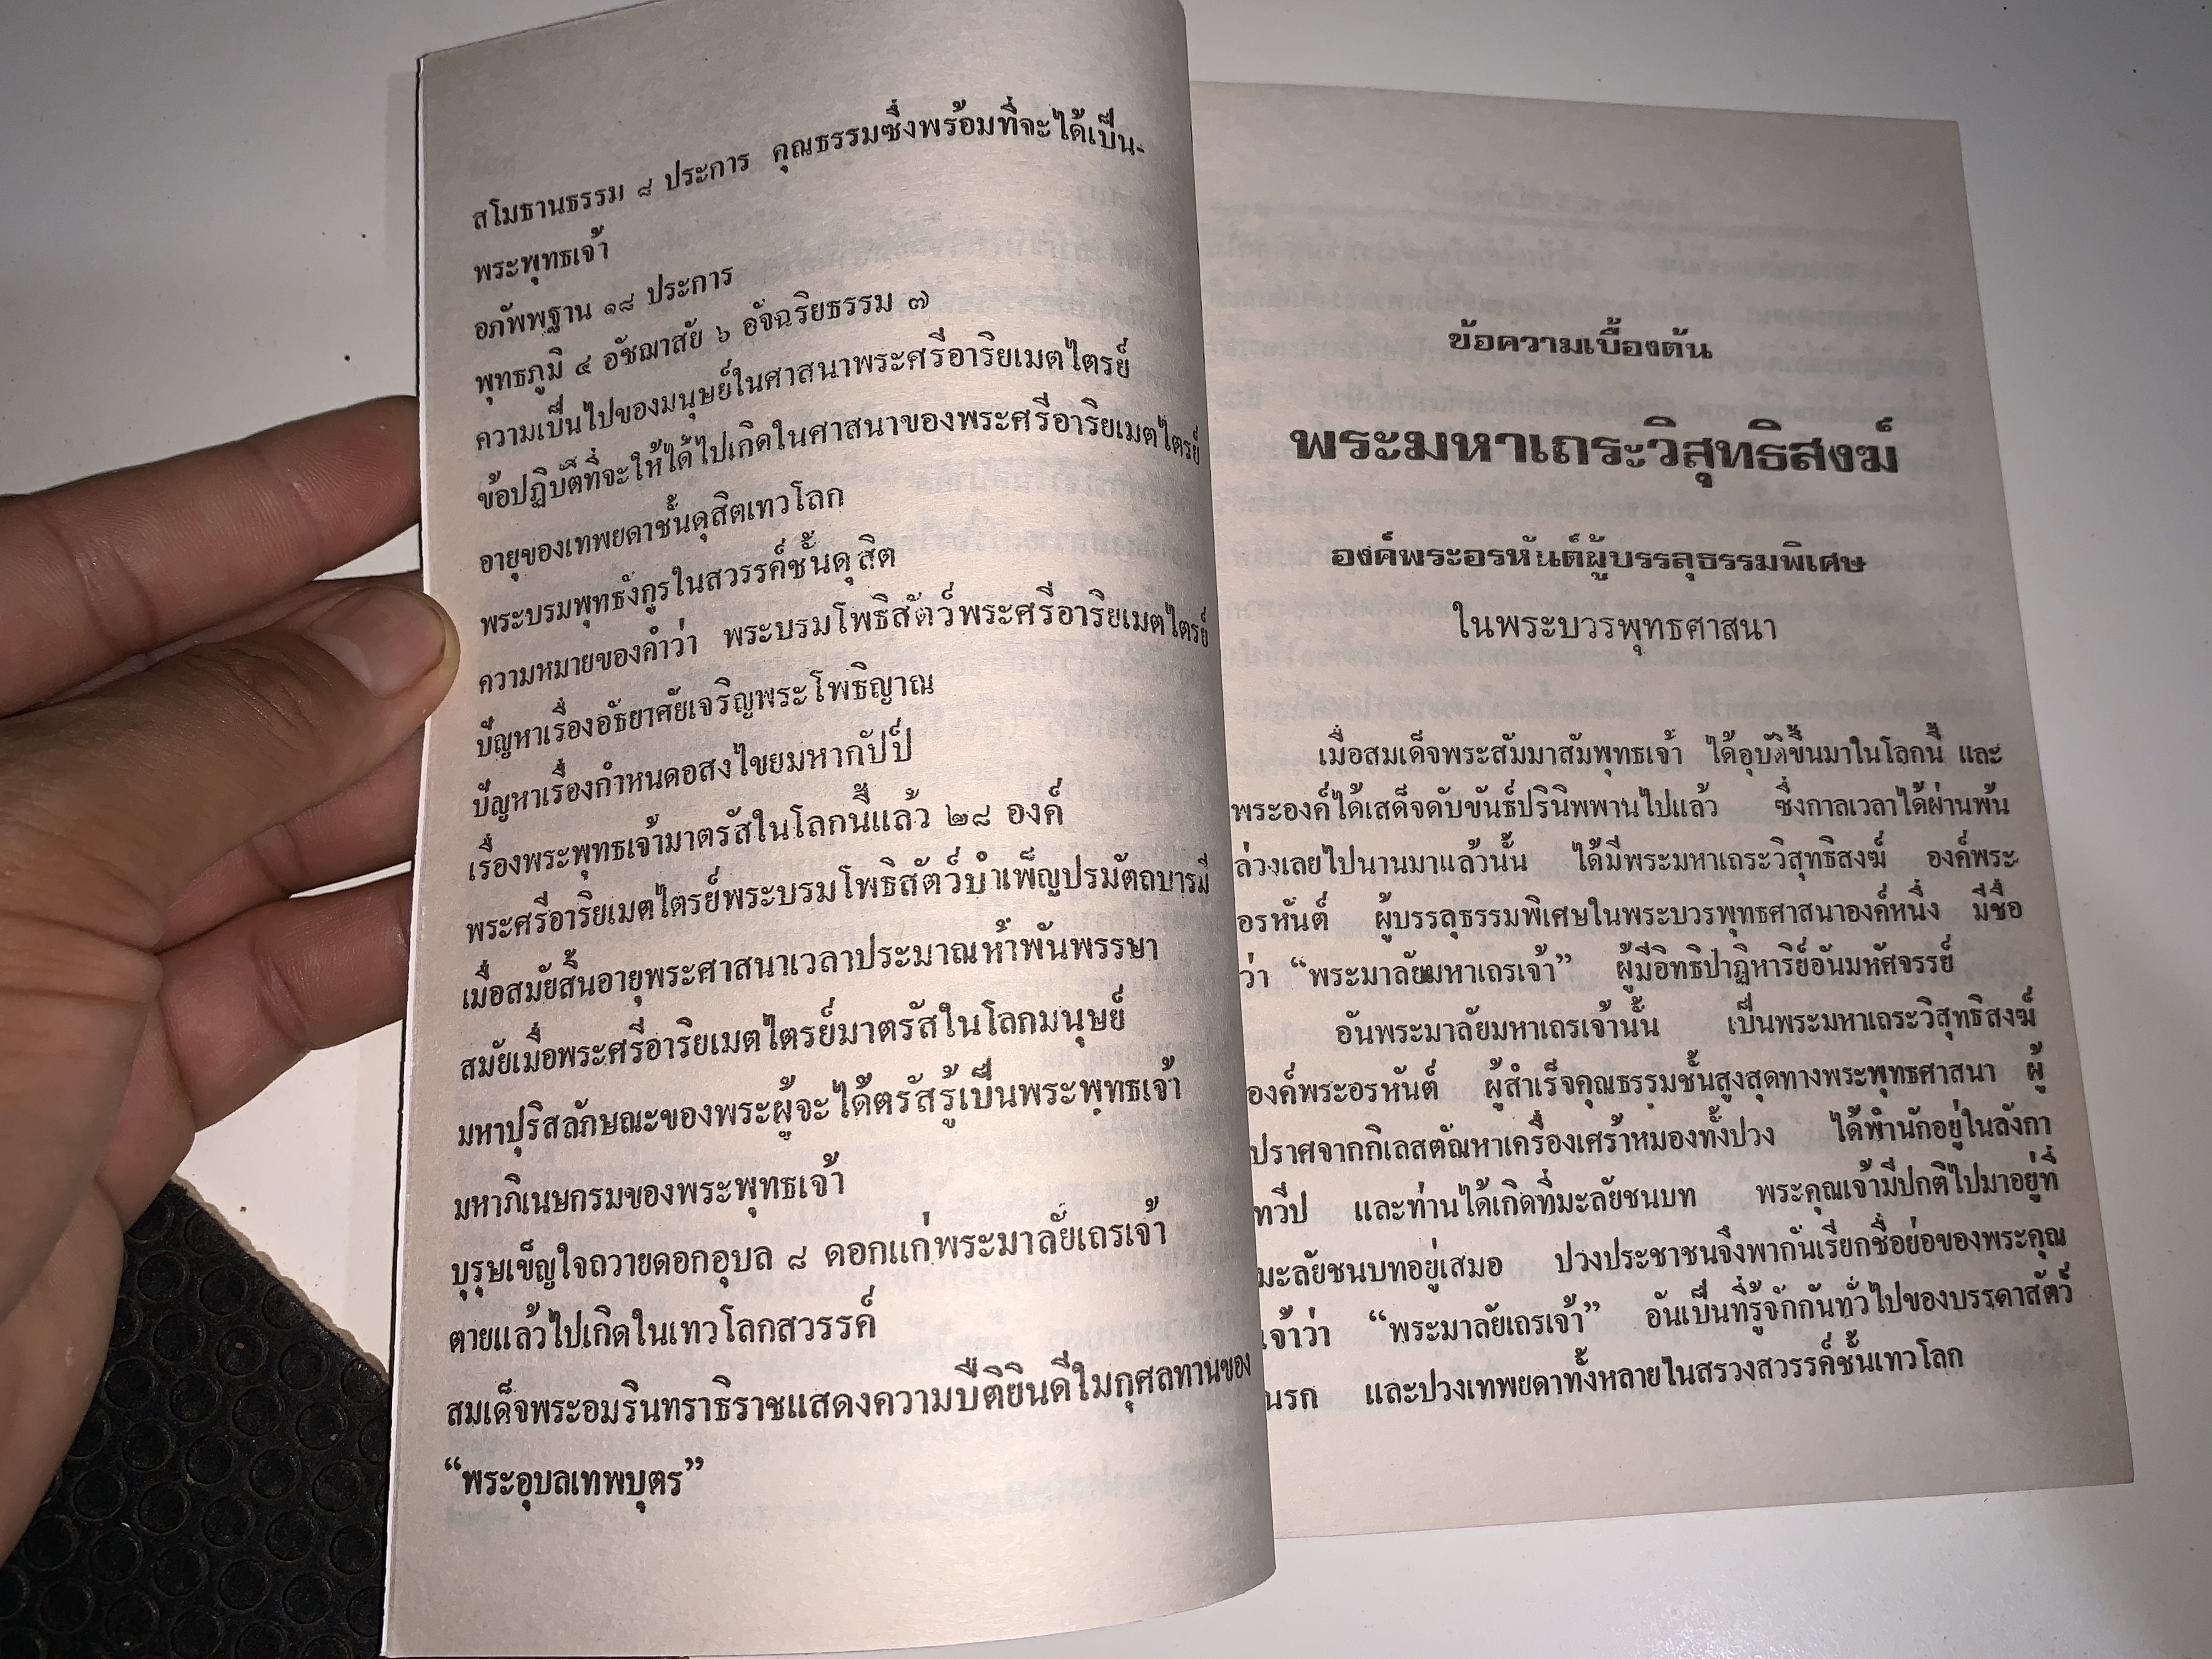 สโมธานธรรม ๘ ประการ คุณธรรมซึ่งพร้อมที่จะได้เป็น-
พระพุทธเจ้า
อภัพพฐาน ๑๘ ประการ
พุทธภูมิ ๔ อัชฌาสัย ๖ อัจฉริยธรรม ๗
ความเป็นไปของมนุษย์ในศาสนาพระศรีอาริยเมตไตรย์
ข้อปฏิบัติที่จะให้ได้ไปเกิดในศาสนาของพระศรีอาริยเมตไตรย์
อายุของเทพยดาชั้นดุสิตเทวโลก
พระบรมพุทธังกูรในสวรรค์ชั้นดุสิต
ความหมายของคำว่า พระบรมโพธิสัตว์พระศรีอาริยเมตไตรย์
ปัญหาเรื่องอัธยาศัยเจริญพระโพธิญาณ
ปัญหาเรื่องกำหนดอสงไขยมหากัปป์
เรื่องพระพุทธเจ้ามาตรัสในโลกนี้แล้ว ๒๘ องค์
พระศรีอาริยเมตไตรย์พระบรมโพธิสัตว์บำเพ็ญปรมัตถบารมี
เมื่อสมัยสิ้นอายุพระศาสนาเวลาประมาณห้าพันพรรษา
สมัยเมื่อพระศรีอาริยเมตไตรย์มาตรัสในโลกมนุษย์
มหาปุริสลักษณะของพระผู้จะได้ตรัสรู้เป็นพระพุทธเจ้า
มหาภิเนษกรมของพระพุทธเจ้า
บุรุษเข็ญใจถวายดอกอุบล ๘ ดอกแก่พระมาลัยเถรเจ้า
ตายแล้วไปเกิดในเทวโลกสวรรค์
สมเด็จพระอมรินทราธิราชแสดงความปีติยินดีในกุศลทานของ
“พระอุบลเทพบุตร”
ข้อความเบื้องต้น
พระมหาเถระวิสุทธิสงฆ์
องค์พระอรหันต์ผู้บรรลุธรรมพิเศษ
ในพระบวรพุทธศาสนา
เมื่อสมเด็จพระสัมมาสัมพุทธเจ้า ได้อุบัติขึ้นมาในโลกนี้ และ
พระองค์ได้เสด็จดับขันธ์ปรินิพพานไปแล้ว ซึ่งกาลเวลาได้ผ่านพ้น
ล่วงเลยไปนานมาแล้วนั้น ได้มีพระมหาเถระวิสุทธิสงฆ์ องค์พระ
อรหันต์ ผู้บรรลุธรรมพิเศษในพระบวรพุทธศาสนาองค์หนึ่ง มีชื่อ
ว่า “พระมาลัยมหาเถรเจ้า” ผู้มีอิทธิปาฏิหาริย์อันมหัศจรรย์
อันพระมาลัยมหาเถรเจ้านั้น เป็นพระมหาเถระวิสุทธิสงฆ์
องค์พระอรหันต์ ผู้สำเร็จคุณธรรมชั้นสูงสุดทางพระพุทธศาสนา ผู้
ปราศจากกิเลสตัณหาเครื่องเศร้าหมองทั้งปวง ได้พำนักอยู่ในลังกา
ทวีป และท่านได้เกิดที่มะลัยชนบท พระคุณเจ้ามีปกติไปมาอยู่ที่
มะลัยชนบทอยู่เสมอ ปวงประชาชนจึงพากันเรียกชื่อย่อของพระคุณ
เจ้าว่า “พระมาลัยเถรเจ้า” อันเป็นที่รู้จักกันทั่วไปของบรรดาสัตว์
นรก และปวงเทพยดาทั้งหลายในสรวงสวรรค์ชั้นเทวโลก